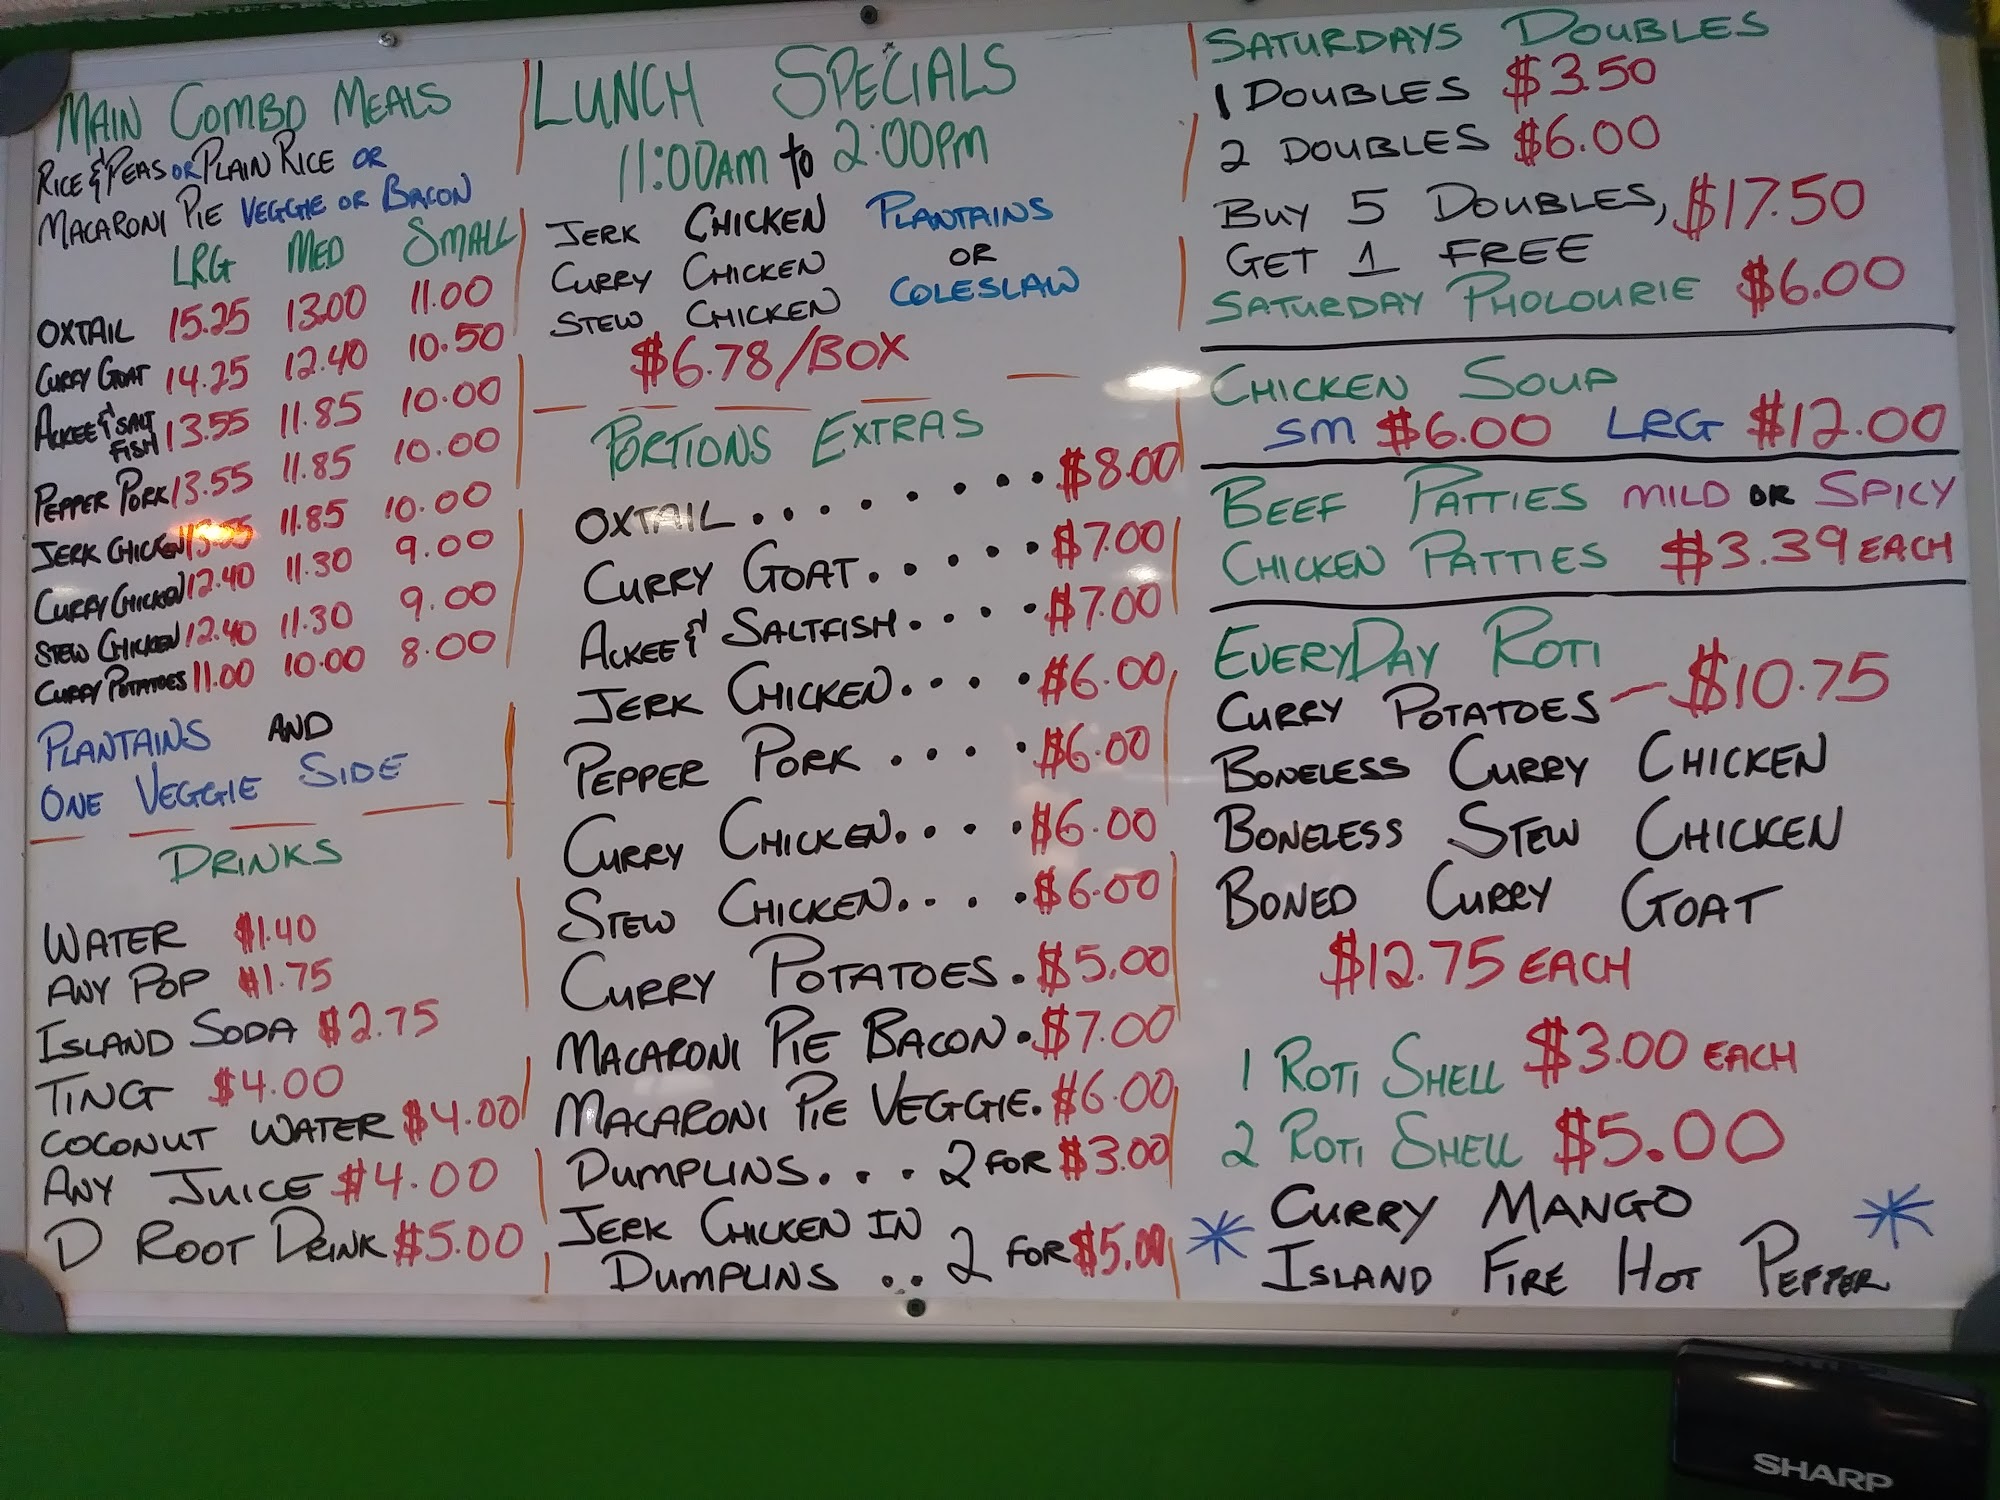 MAIN COMBO MEALS
RICE & PEAS OR PLAIN RICE OR
MACARONI PIE VEGGIE OR BACON
LRG MED SMALL
OXTAIL 15.25 13.00 11.00
CURRY GOAT 14.25 12.40 10.50
ACKEE & SALT FISH 13.55 11.85 10.00
PEPPER PORK 13.55 11.85 10.00
JERK CHICKEN 11.85 10.00
CURRY CHICKEN 12.40 11.30 9.00
STEW CHICKEN 12.40 11.30 9.00
CURRY POTATOES 11.00 10.00 8.00
PLANTAINS AND
ONE VEGGIE SIDE
DRINKS
WATER $1.40
ANY POP $1.75
ISLAND SODA $2.75
TING $4.00
COCONUT WATER $4.00
ANY JUICE $4.00
D ROOT DRINK $5.00
LUNCH SPECIALS
11:00AM to 2:00PM
JERK CHICKEN PLANTAINS
CURRY CHICKEN OR
STEW CHICKEN COLESLAW
$6.78/BOX
PORTIONS EXTRAS
OXTAIL........$8.00
CURRY GOAT......$7.00
ACKEE & SALTFISH....$7.00
JERK CHICKEN....$6.00
PEPPER PORK....$6.00
CURRY CHICKEN....$6.00
STEW CHICKEN....$6.00
CURRY POTATOES.$5.00
MACARONI PIE BACON.$7.00
MACARONI PIE VEGGIE.$6.00
DUMPLINS... 2 FOR $3.00
JERK CHICKEN IN
DUMPLINS .. 2 FOR $5.00
SATURDAYS DOUBLES
1 DOUBLES $3.50
2 DOUBLES $6.00
BUY 5 DOUBLES, $17.50
GET 1 FREE
SATURDAY PHOLOURIE $6.00
CHICKEN SOUP
SM $6.00 LRG $12.00
BEEF PATTIES MILD OR SPICY
CHICKEN PATTIES $3.39 EACH
EVERYDAY ROTI
CURRY POTATOES - $10.75
BONELESS CURRY CHICKEN
BONELESS STEW CHICKEN
BONED CURRY GOAT
$12.75 EACH
1 ROTI SHELL $3.00 EACH
2 ROTI SHELL $5.00
* CURRY MANGO *
ISLAND FIRE HOT PEPPER
SHARP